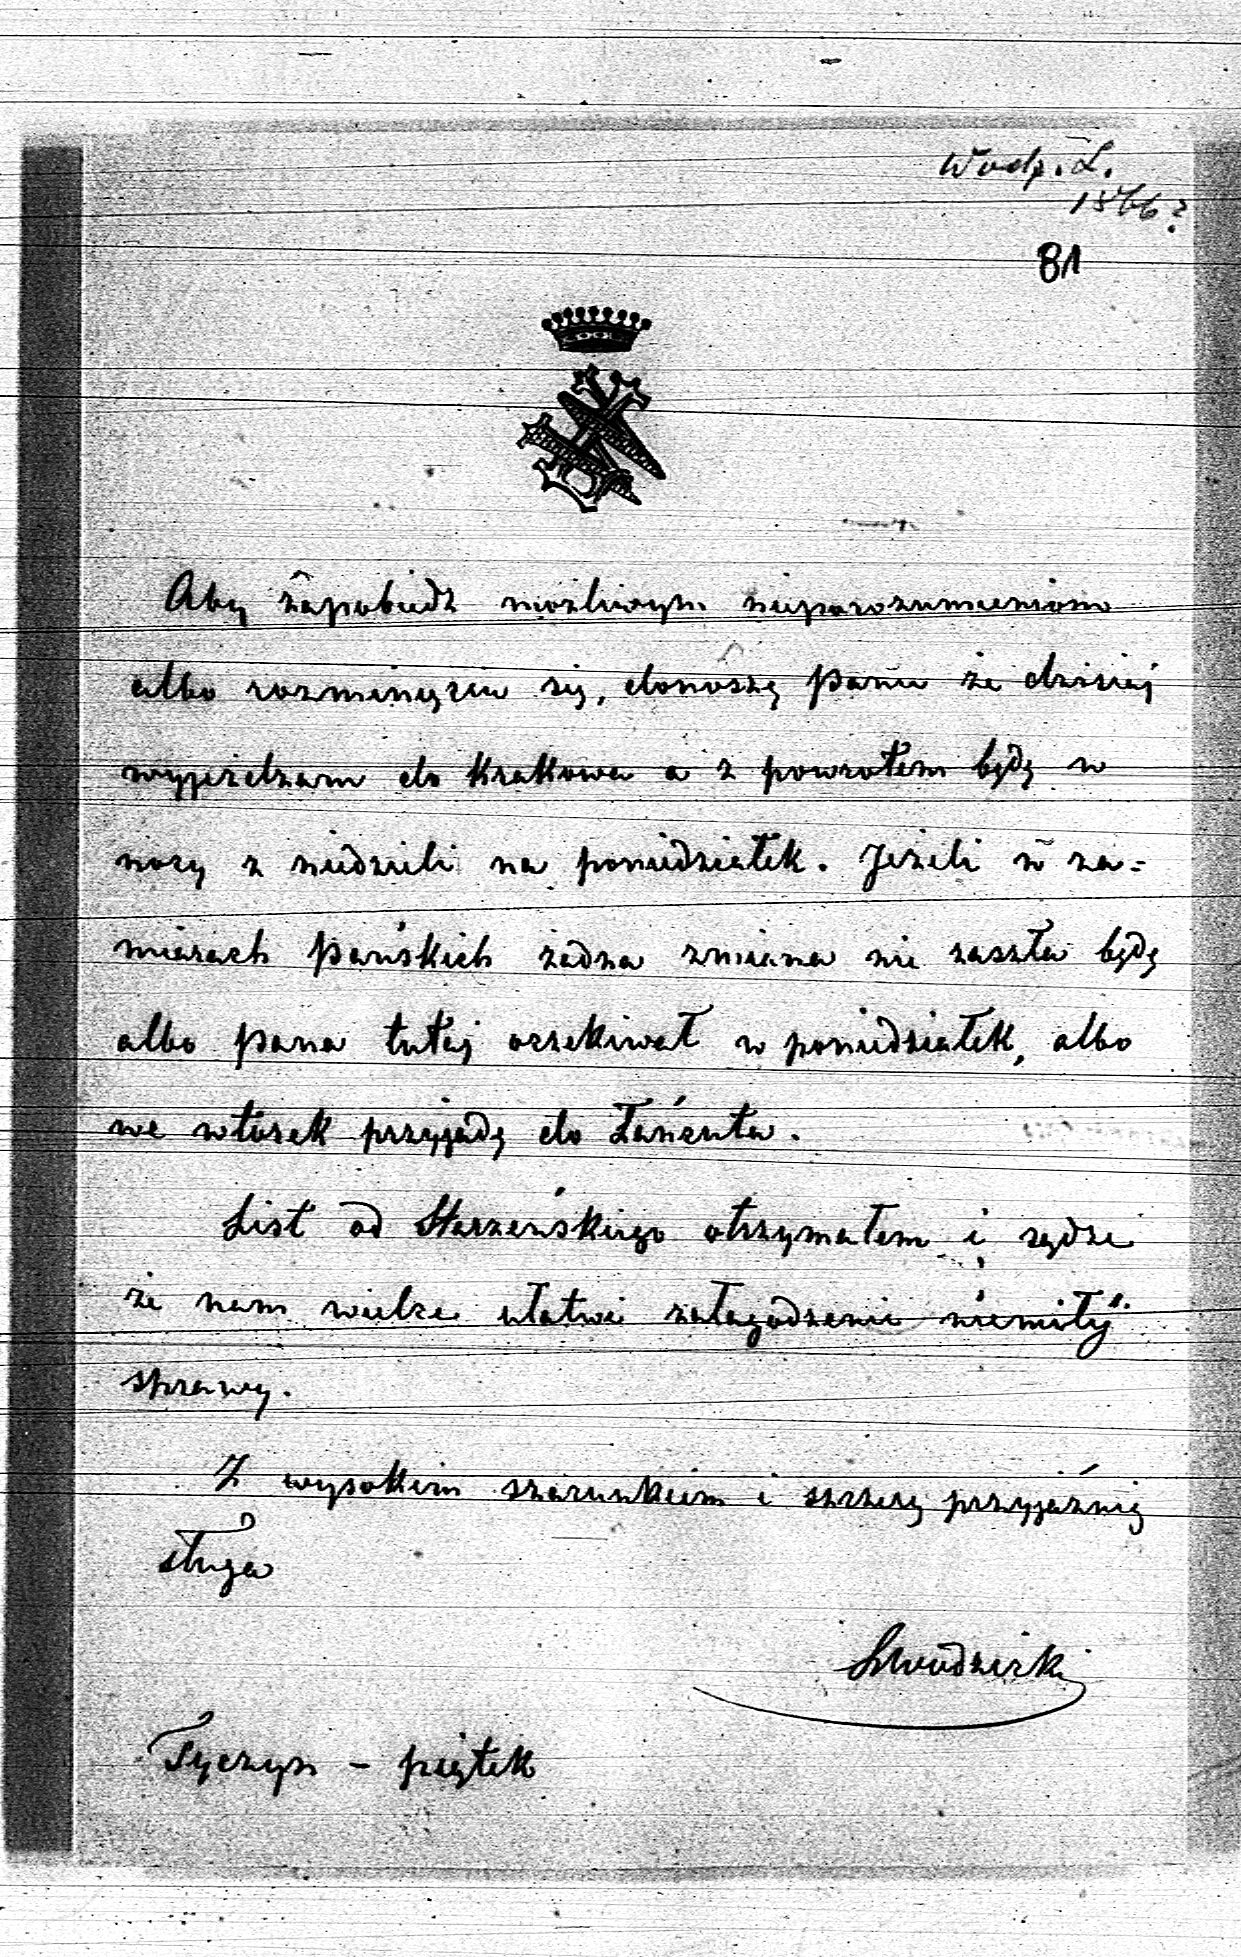 Wodz. L.
1866?
81
Aby zapobiedz możliwym nieporozumieniom
albo rozminięciu się, donoszę Panu że dzisiej
wyjeżdzam do Krakowa a z powrotem będę w
nocy z niedzieli na poniedziałek. Jeżeli w za-
miarach Pańskich żadna zmiana nie zaszła będę
albo Pana tutaj oczekiwał w poniedziałek, albo
we wtorek przyjadę do Łańcuta.
List od Starzeńskiego otrzymałem i sądze
że nam wielce ułatwi załagodzenie niemiłéj
sprawy.
Z wysokim szacunkiem i szczerą przyjaźnią
sługa
LWodzicki
Tyczyn – piątek